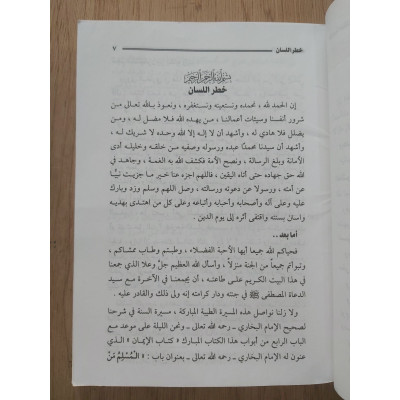 خطر اللسان ٧
بسم الله الرحمن الرحيم
خطر اللسان
إن الحمد لله ، نحمده ونستعينه ونستغفره ، ونعوذ بالله تعالى من
شرور أنفسنا وسيئات أعمالنا ، من يهده الله فلا مضل له ، ومن
يضلل فلا هادي له ، وأشهد أن لا إله إلا الله وحده لا شريك له ،
وأشهد أن سيدنا محمدًا عبده ورسوله وصفيه من خلقه وخليله أدى
الأمانة وبلغ الرسالة ، ونصح الأمة فكشف الله به الغمة ، وجاهد في
الله حق جهاده حتى أتاه اليقين ، فاللهم اجزه عنا خير ما جزيت نبيًّا
عن أمته ، ورسولا عن دعوته ورسالته ، وصل اللهم وسلم وزد وبارك
عليه وعلى آله وأصحابه وأحبابه وأتباعه وعلى كل من اهتدى بهديه
واستن بسنته واقتفى أثره إلى يوم الدين .
أما بعد ..
فحياكم الله جميعا أيها الأحبة الفضلاء ، وطبتم وطاب ممشاكم ،
وتبوأتم جميعاً من الجنة منزلاً ، وأسأل الله العظيم جلّ وعلا الذي جمعنا
في هذا البيت الكريم على طاعته ، أن يجمعنا في الآخرة مع سيد
الدعاة المصطفى ﷺ في جنته ودار كرامته إنه ولي ذلك والقادر عليه .
ولا زلنا نواصل هذه المسيرة الطيبة المباركة ، مسيرة السنة في شرحنا
لصحيح الإمام البخاري ـ رحمه الله تعالى ـ ونحن الليلة على موعد مع
الباب الرابع من أبواب هذا الكتاب المبارك « كتاب الإيمان » الذي
عنون له الإمام البخاري ـ رحمه الله تعالى ـ بعنوان باب : « الْمُسْلِمُ مَنْ